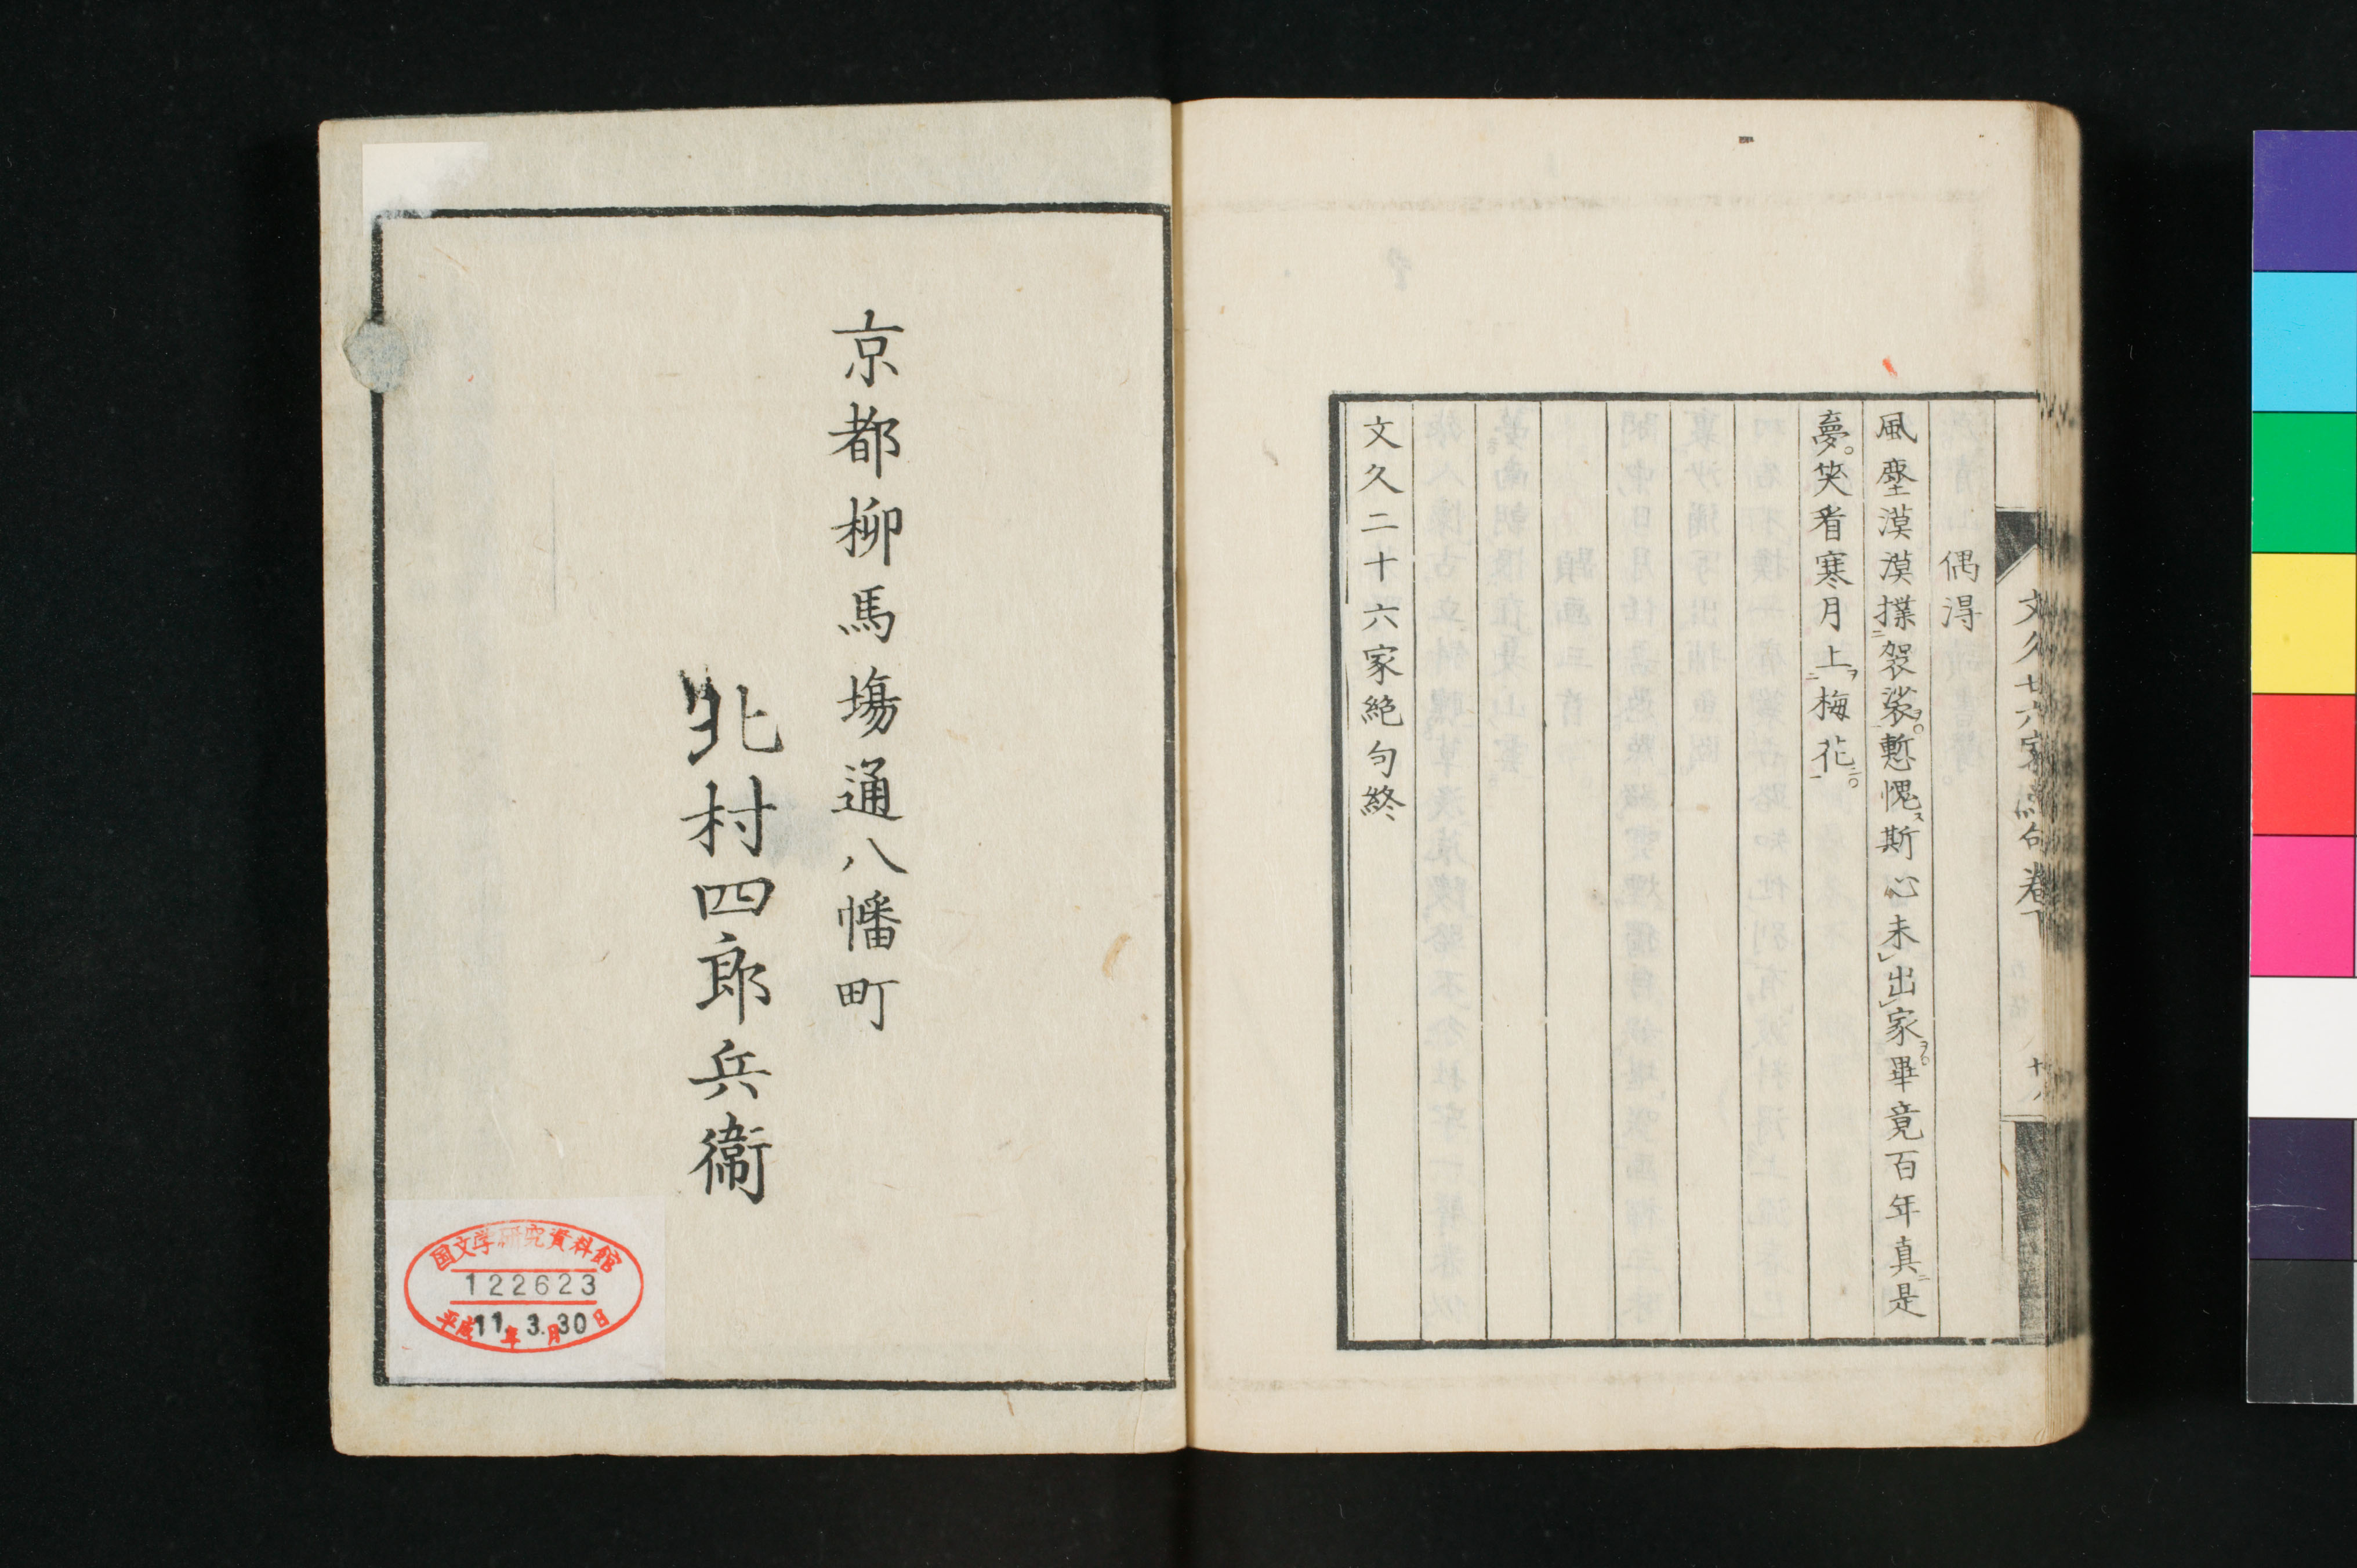 文久廿六家絶句卷下
十八
偶得
風塵漠漠撲袈裟慙愧斯心未出家畢竟百年真是
夢笑看寒月上梅花
文久二十六家絶句終
京都柳馬塲通八幡町
北村四郎兵衞
国文学研究資料館
122623
平成11年3月30日